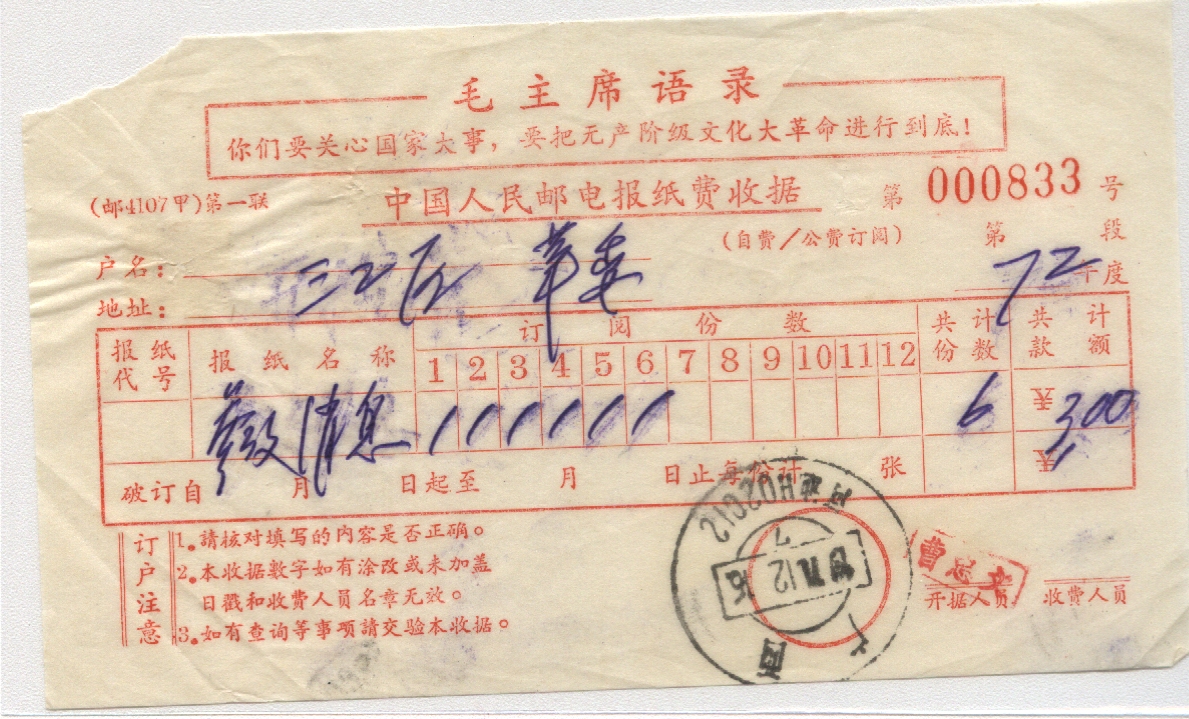 毛主席语录
你们要关心国家大事，要把无产阶级文化大革命进行到底！
(邮4107甲)第一联 中国人民邮电报纸费收据 第 000833 号
(自费/公费订阅) 第 段
户名： 三江区 72年度
地址：
报纸代号 报纸名称 订阅份数 共计份数 共计款额
1 2 3 4 5 6 7 8 9 10 11 12
参考消息 1 1 1 1 1 1 6 3.00
破订自 月 日起至 月 日止每份计 张
订户注意
1。請核对填写的内容是否正确。
2。本收据数字如有涂改或未加盖
日戳和收费人员名章无效。
3。如有查询等事项請交验本收据。
开据人员 收费人员
广西